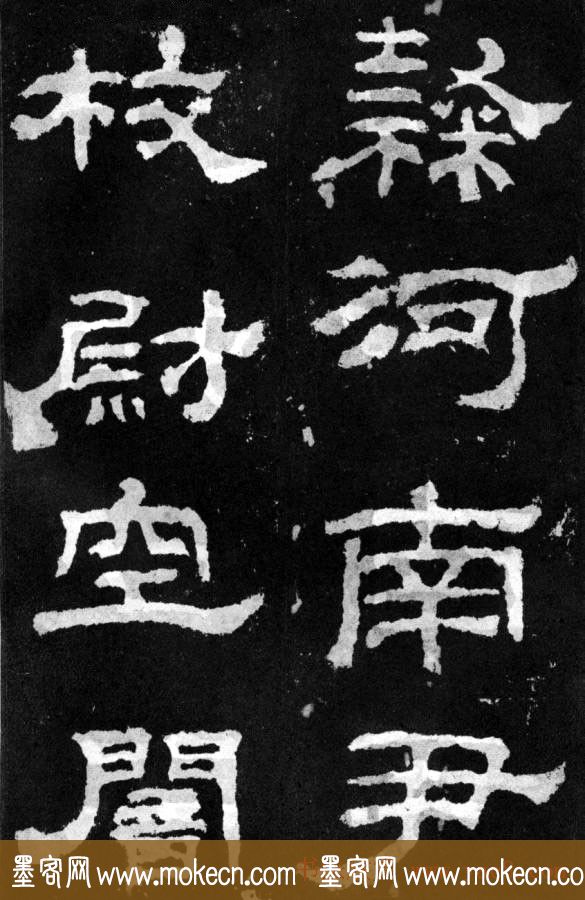 隸河南尹
校尉空闇
墨客网 www.mokecn.com 墨客网 www.mokecn.co